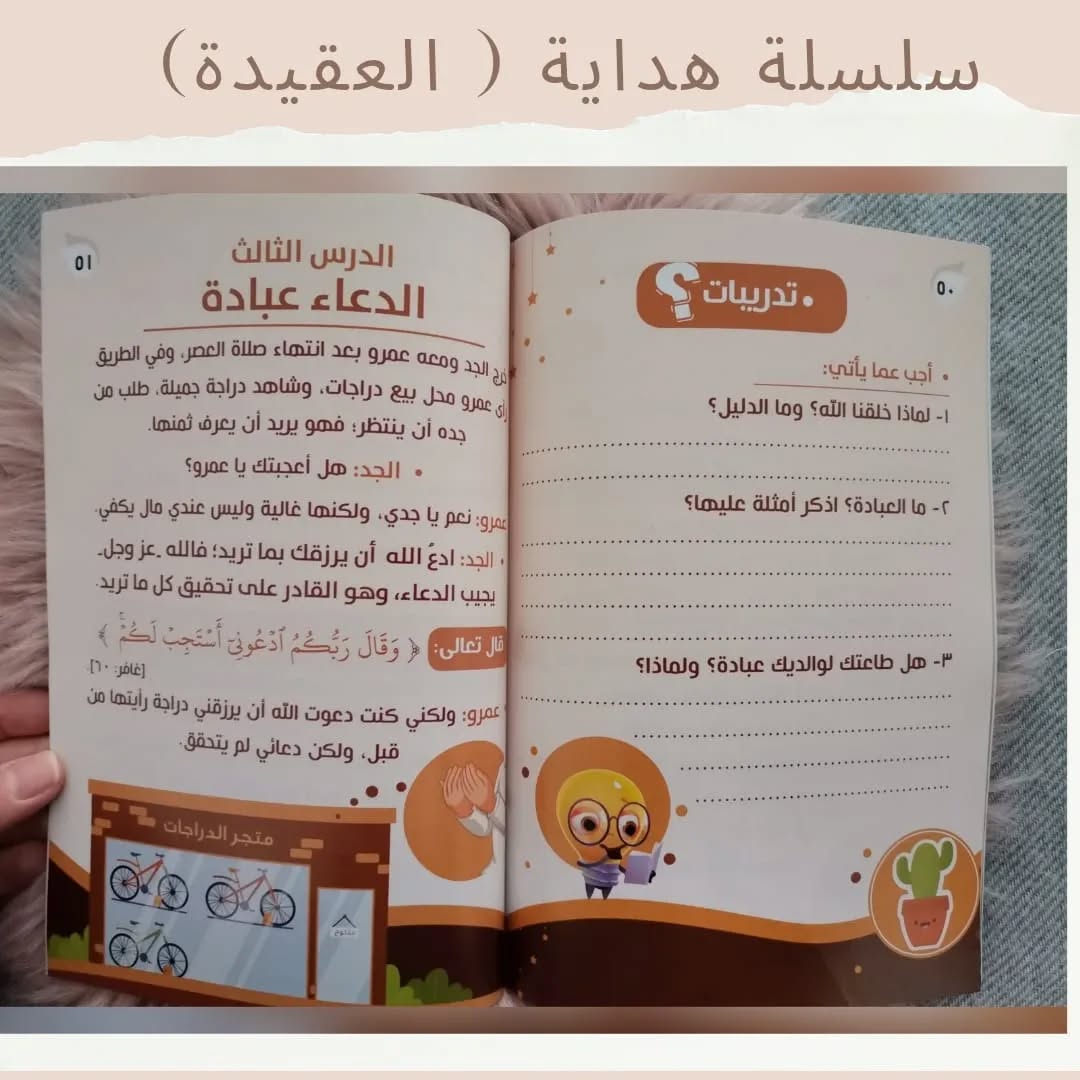 سلسلة هداية ( العقيدة)
٥٠
تدريبات ؟
• أجب عما يأتي:
١- لماذا خلقنا الله؟ وما الدليل؟
٢- ما العبادة؟ اذكر أمثلة عليها؟
٣- هل طاعتك لوالديك عبادة؟ ولماذا؟
٥١
الدرس الثالث
الدعاء عبادة
خرج الجد ومعه عمرو بعد انتهاء صلاة العصر، وفي الطريق
رأى عمرو محل بيع دراجات، وشاهد دراجة جميلة، طلب من
جده أن ينتظر؛ فهو يريد أن يعرف ثمنها.
• الجد: هل أعجبتك يا عمرو؟
عمرو: نعم يا جدي، ولكنها غالية وليس عندي مال يكفي.
• الجد: ادعُ الله أن يرزقك بما تريد؛ فالله ـ عز وجل ـ
يجيب الدعاء، وهو القادر على تحقيق كل ما تريد.
قال تعالى: ﴿ وَقَالَ رَبُّكُمُ ٱدۡعُونِيٓ أَسۡتَجِبۡ لَكُمۡۚ ﴾
[غافر: ٦٠].
عمرو: ولكني كنت دعوت الله أن يرزقني دراجة رأيتها من
قبل، ولكن دعائي لم يتحقق.
متجر الدراجات
مفتوح